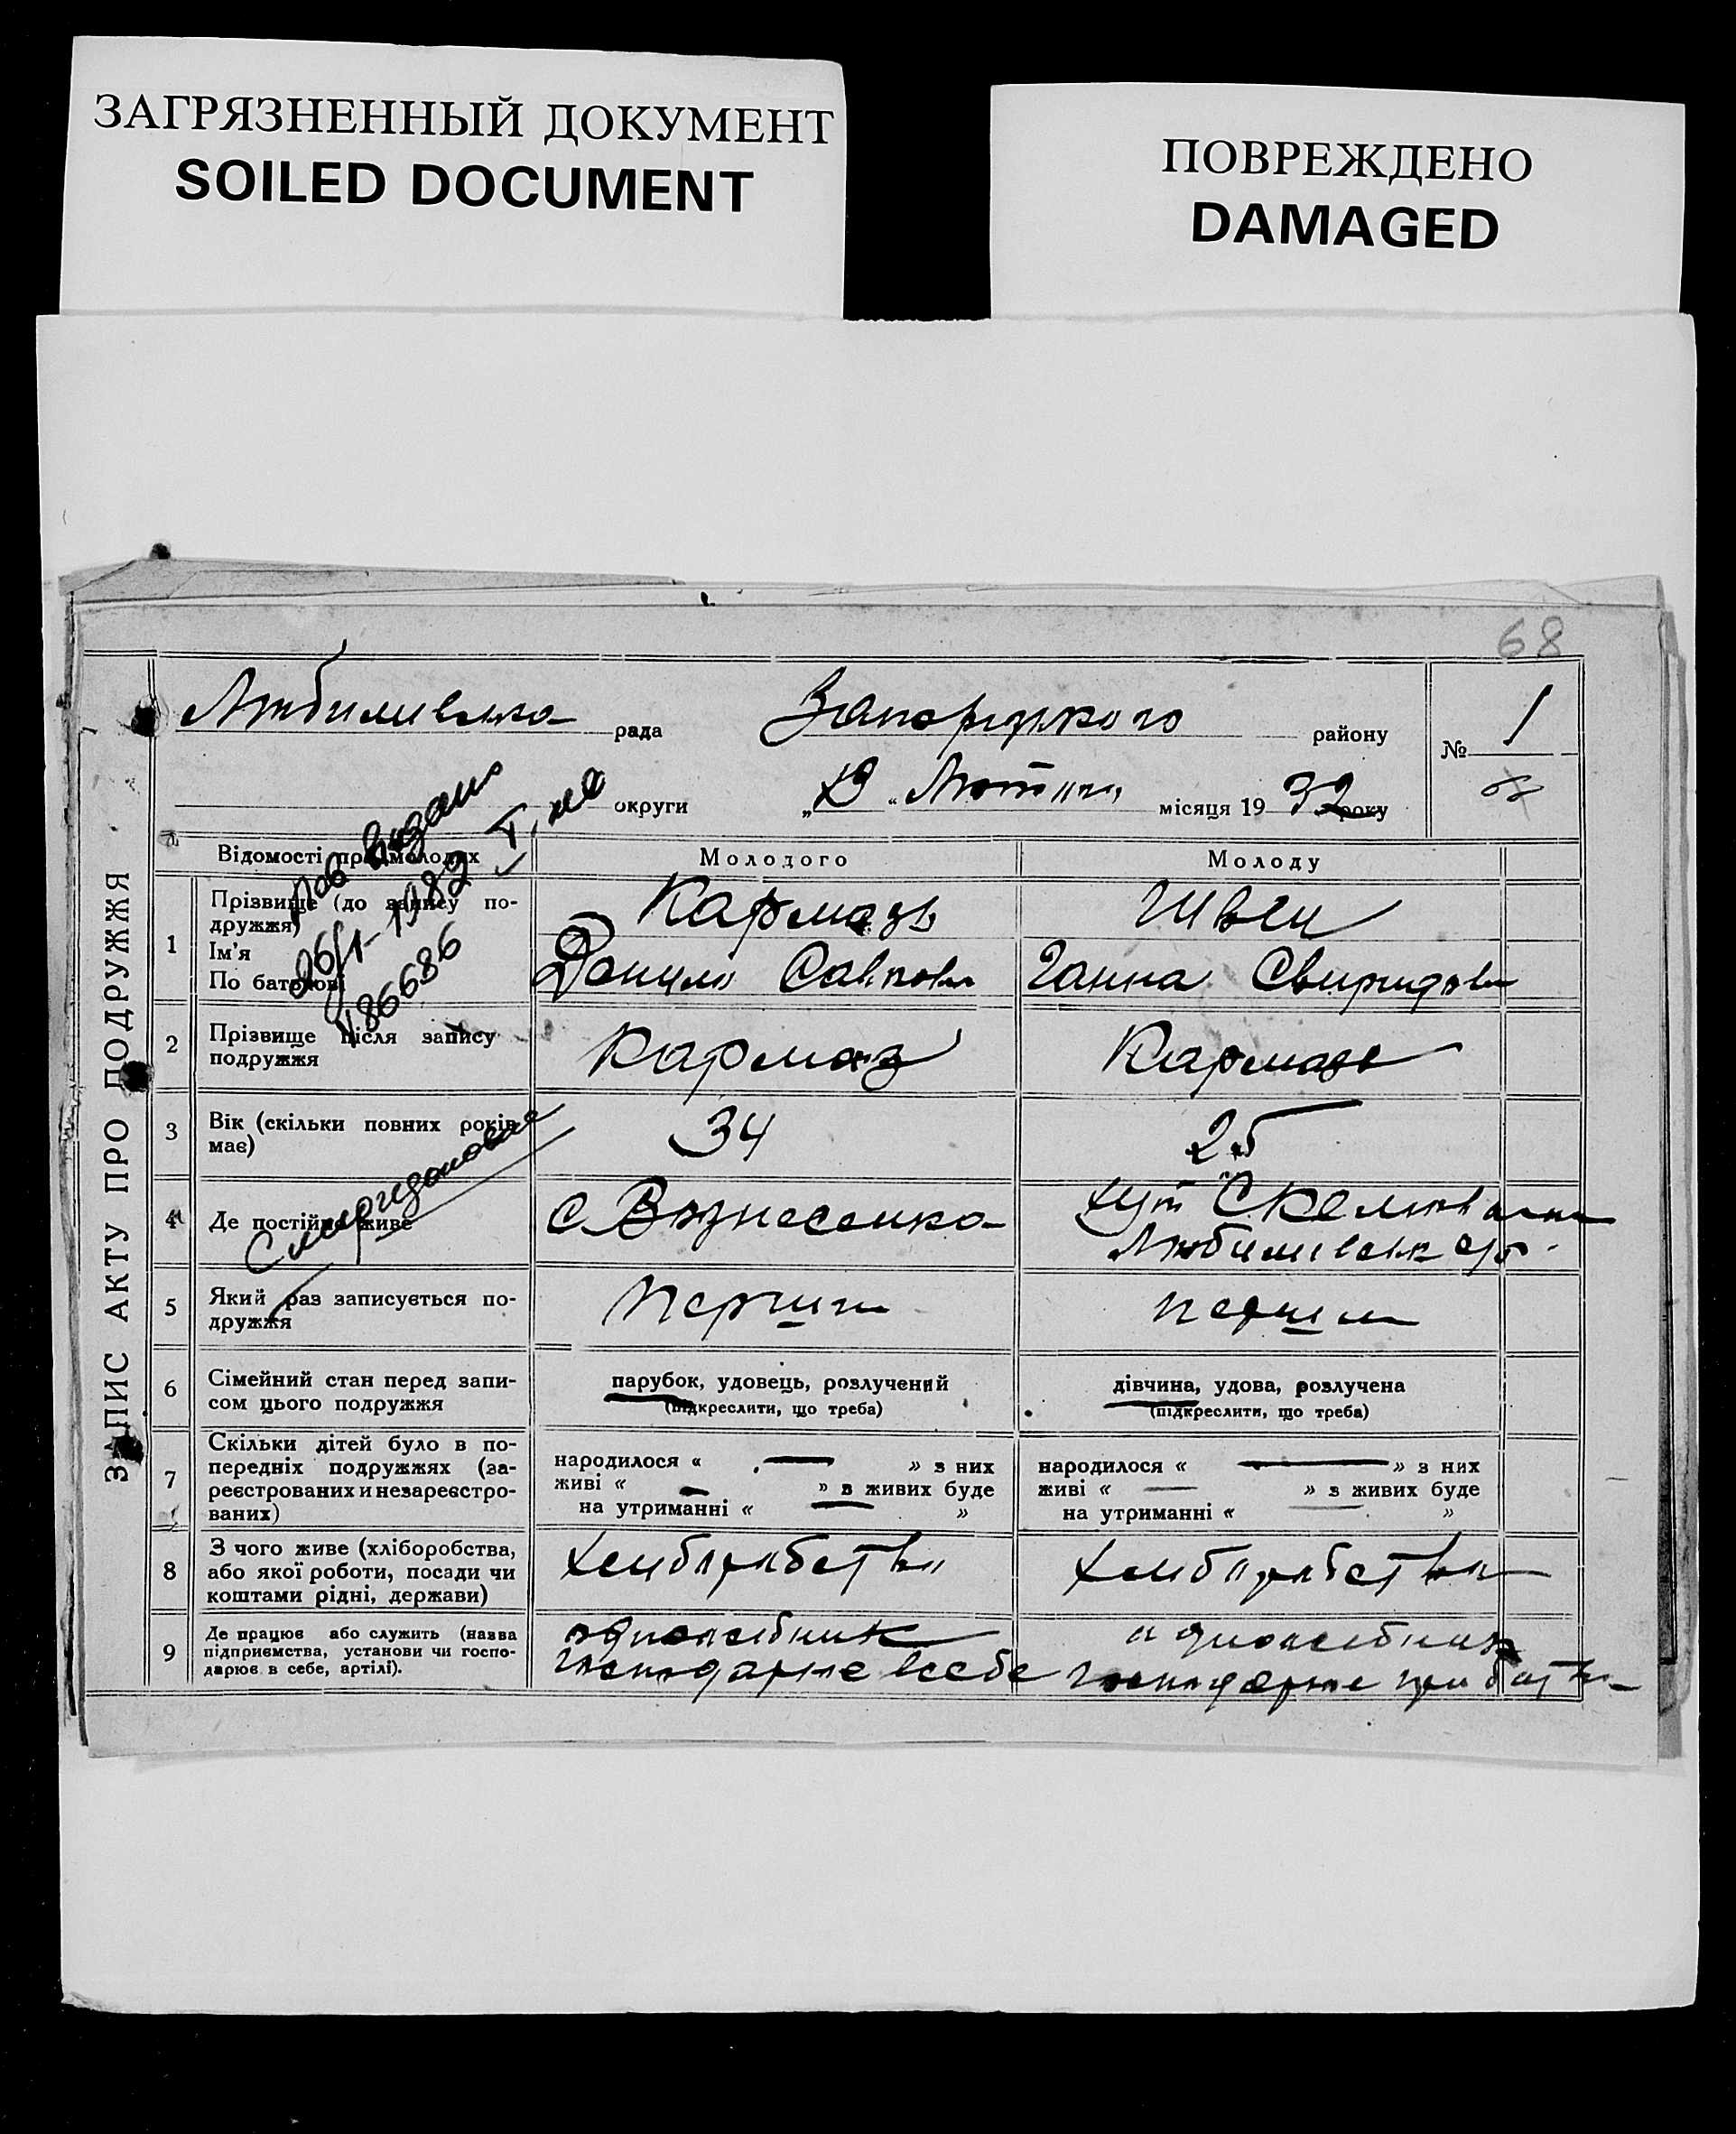 ЗАГРЯЗНЕННЫЙ ДОКУМЕНТ
SOILED DOCUMENT
ПОВРЕЖДЕНО
DAMAGED
68
ЗАПИС АКТУ ПРО ПОДРУЖЖЯ
Любимівська рада Запорізького району № 1
округи „ “ Лютого місяця 1932 року
Відомості про молодих Молодого Молоду
1 Прізвище (до запису по-
дружжя) Кармазь Швец
Ім'я
По батькові Данило Савков Ганна Свиридов
26/I-1982
486686
2 Прізвище після запису
подружжя Кармаз Кармазь
3 Вік (скільки повних років
має) 34 25
Спиридоновна
4 Де постійно живе с Вознесенка хут
Любимівськ с/р
5 Який раз записується по-
дружжя Перший перший
6 Сімейний стан перед запи-
сом цього подружжя парубок, удовець, розлучений дівчина, удова, розлучена
(підкреслити, що треба) (підкреслити, що треба)
7 Скільки дітей було в по-
передніх подружжях (за-
реєстрованих и незареєстро-
ваних) народилося « — » з них народилося « — » з них
живі « — » з живих буде живі « — » з живих буде
на утриманні « — » на утриманні « — »
8 З чого живе (хліборобства,
або якої роботи, посади чи
коштами рідні, держави) хліборобства хліборобства
9 Де працює або служить (назва
підприємства, установи чи госпо-
дарює в себе, артілі). одноосібник одноосібник
господарює всебе господарює при батьк